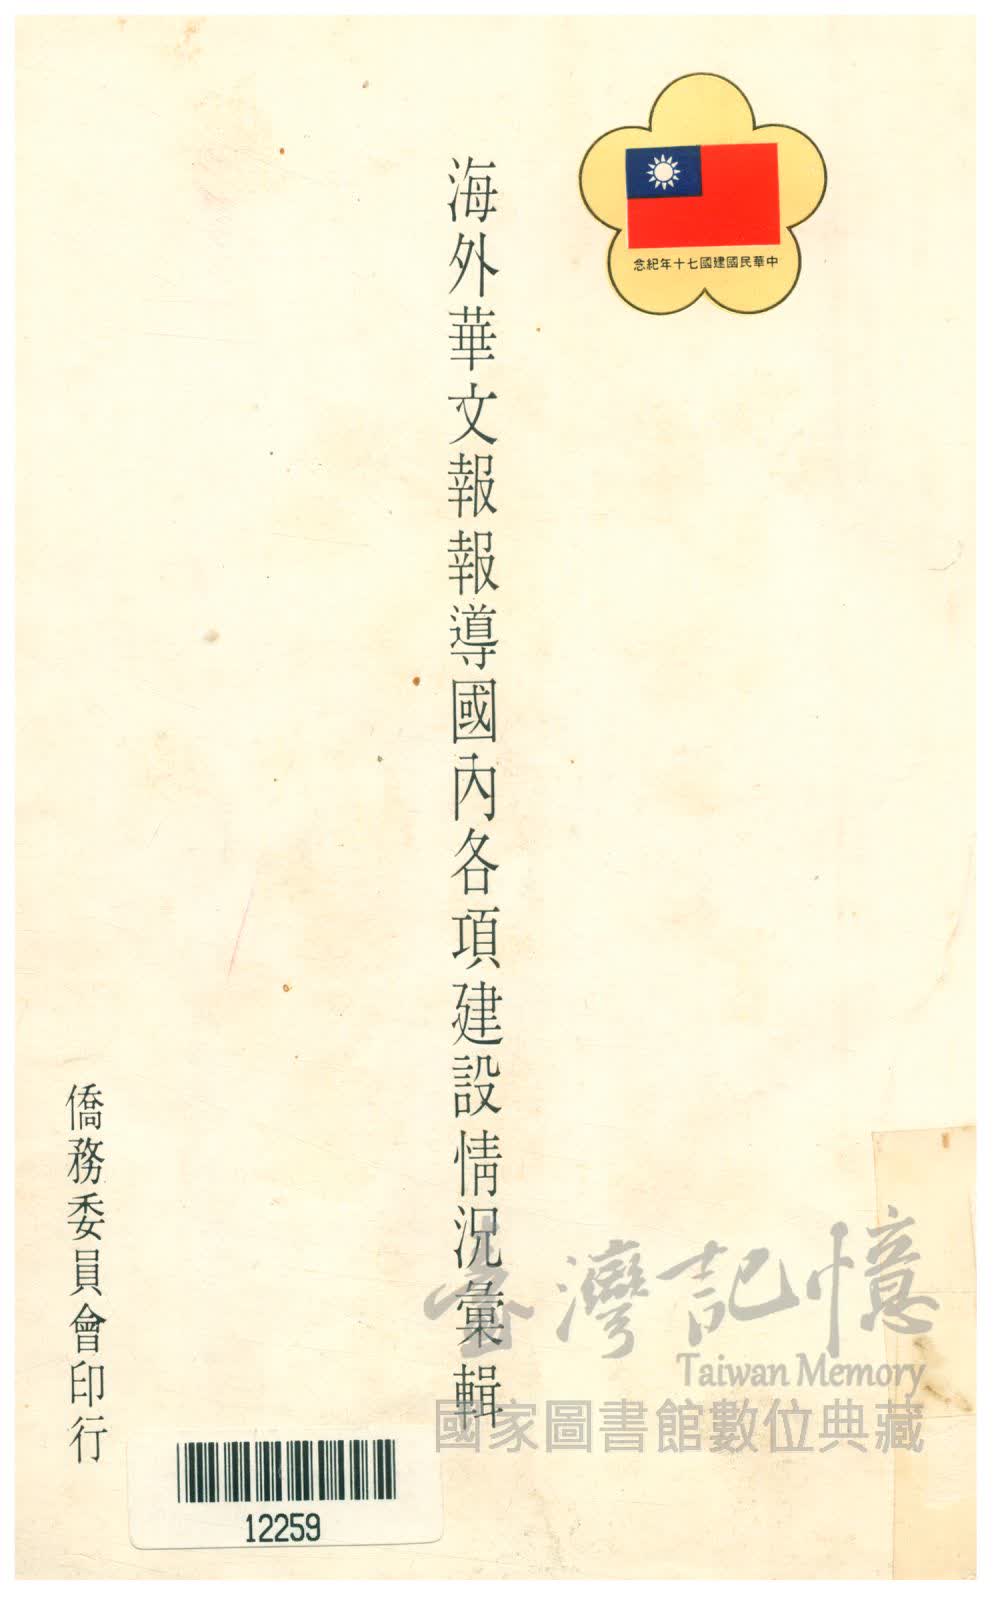 中華民國建國七十年紀念
海外華文報報導國內各項建設情況彙輯
僑務委員會印行
臺灣記憶
Taiwan Memory
國家圖書館數位典藏
12259